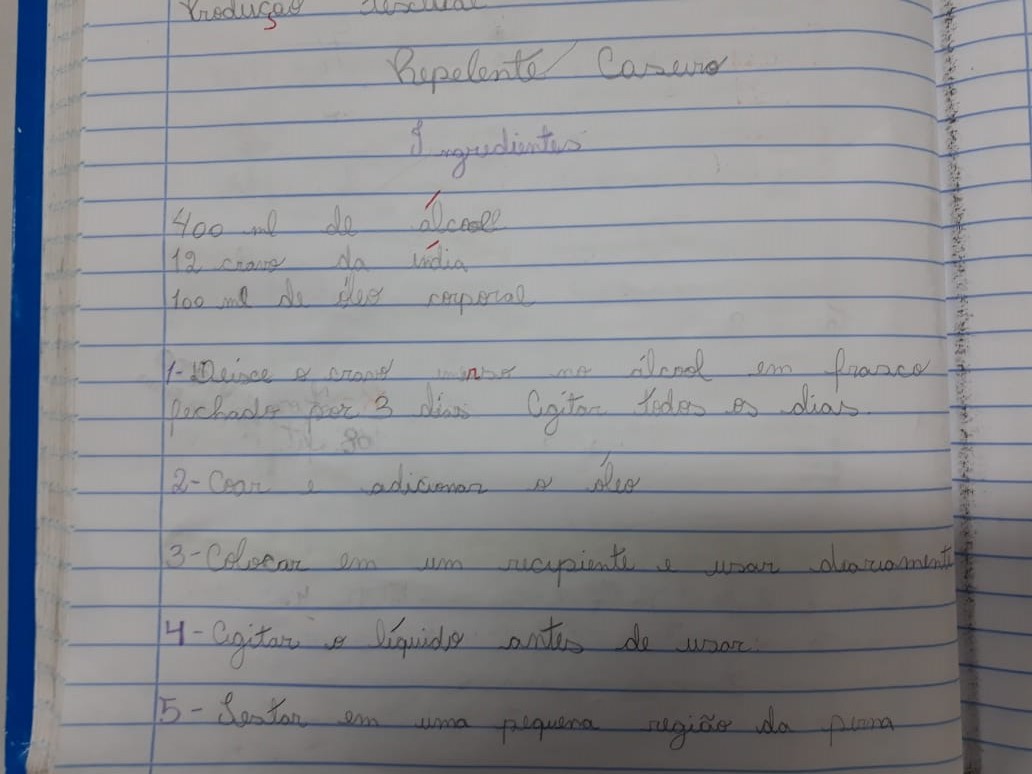 Produção textual
Repelente Caseiro
Ingredientes
400 ml de álcooll
12 cravo da índia
100 ml de óleo corporal
1- Deisce o cravo no álcool em frasco
fechado por 3 dias Agitar todos os dias.
2- Coar e adicionar o óleo
3- Colocar em um recipiente e usar diariamente
4- Agitar o líquido antes de usar.
5- Testar em uma pequena região da perna